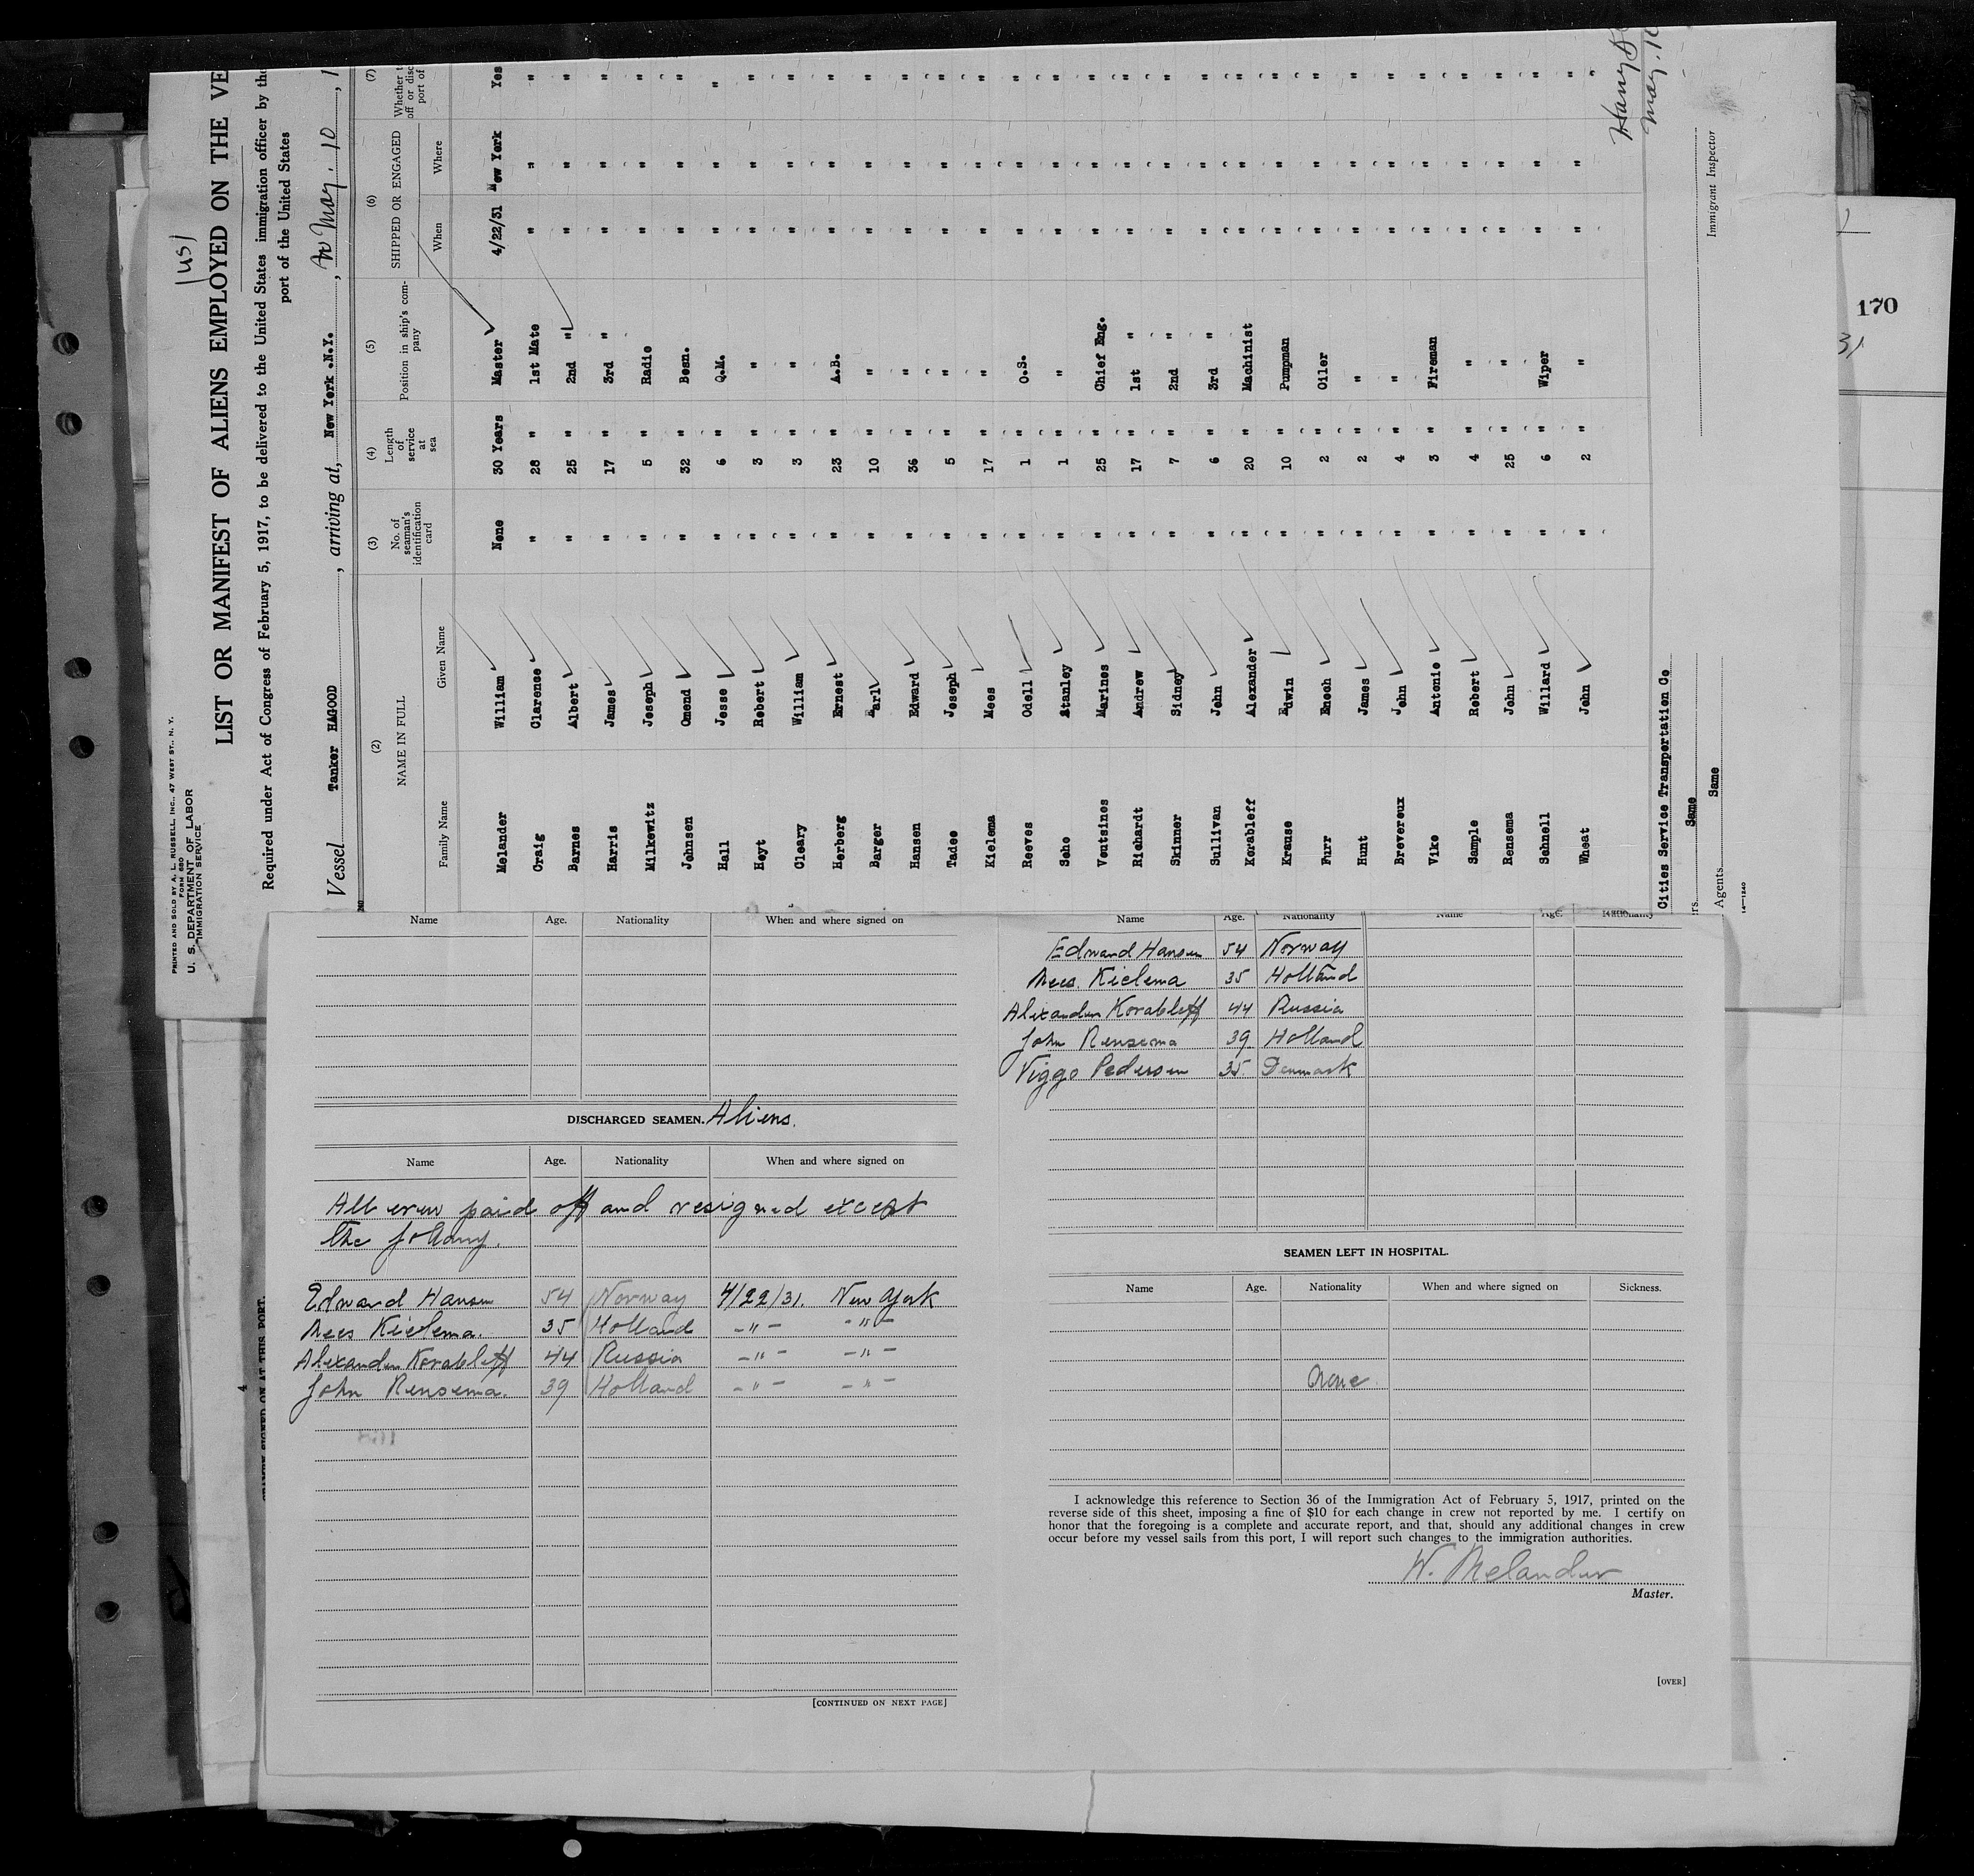 PRINTED AND SOLD BY A. L. RUSSELL, INC., 47 WEST ST., N. Y.
U. S. DEPARTMENT OF LABOR
FORM 680
IMMIGRATION SERVICE
LIST OR MANIFEST OF ALIENS EMPLOYED ON THE VE
Required under Act of Congress of February 5, 1917, to be delivered to the United States immigration officer by the
port of the United States
Vessel Tanker HAGOOD, arriving at, New York .N.Y., May. 10, 1
(2) (3) (4) (5) (6) (7)
NAME IN FULL No. of seaman's identification card Length of service at sea Position in ship's company SHIPPED OR ENGAGED Whether t off or disc port of
Family Name Given Name When Where
Melander William None 30 Years Master 4/22/31 New York Yes
Craig Clarence " 28 " 1st Mate " " "
Barnes Albert " 25 " 2nd " " " "
Harris James " 17 " 3rd " " " "
Milkewitz Joseph " 5 " Radio " " "
Johnsen Omend " 32 " Bosn. " " "
Hall Jesse " 6 " Q.M. " " "
Hoyt Robert " 3 " " " " "
Cleary William " 3 " " " " "
Herberg Ernest " 23 " A.B. " " "
Barger Earl " 10 " " " " "
Hansen Edward " 36 " " " " "
Tadee Joseph " 5 " " " " "
Kielema Mees " 17 " " " " "
Reeves Odell " 1 " O.S. " " "
Soho Stanley " 1 " " " " "
Voutsines Marines " 25 " Chief Eng. " " "
Richardt Andrew " 17 " 1st " " " "
Skinner Sidney " 7 " 2nd " " " "
Sullivan John " 6 " 3rd " " " "
Korableff Alexander " 20 " Machinist " " "
Krause Edwin " 10 " Pumpman " " "
Furr Enoch " 2 " Oiler " " "
Hunt James " 2 " " " " "
Brevereux John " 4 " " " " "
Vike Antonio " 3 " Fireman " " "
Sample Robert " 4 " " " " "
Rensema John " 25 " " " " "
Schnell Willard " 6 " Wiper " " "
Wheat John " 2 " " " " "
Cities Service Transportation Co
Same
Agents Same
Immigrant Inspector
Harry
May. 10
14—1240
170
31
Name Age. Nationality When and where signed on
DISCHARGED SEAMEN. Aliens.
Name Age. Nationality When and where signed on
All crew paid off and resigned except
the follong.
Edward Hansen 54 Norway 4/22/31. New York
Mees Kielema. 35 Holland -"- -"-
Alexander Korableff 44 Russia -"- -"-
John Rensema. 39 Holland -"- -"-
[CONTINUED ON NEXT PAGE]
4
Name Age. Nationality Name Age. Nationality
Edward Hansen 54 Norway
Mees. Kielema 35 Holland
Alexander Korableff 44 Russia
John Rensema 39 Holland
Viggo Pedersen 35. Denmark
SEAMEN LEFT IN HOSPITAL.
Name Age. Nationality When and where signed on Sickness.
None
I acknowledge this reference to Section 36 of the Immigration Act of February 5, 1917, printed on the
reverse side of this sheet, imposing a fine of $10 for each change in crew not reported by me. I certify on
honor that the foregoing is a complete and accurate report, and that, should any additional changes in crew
occur before my vessel sails from this port, I will report such changes to the immigration authorities.
W. Melander
Master.
[OVER]